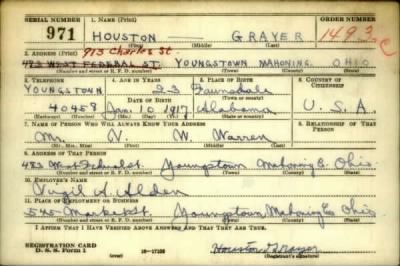 SERIAL NUMBER 1. NAME (Print) ORDER NUMBER
971 HOUSTON GRAYER 1493
(First) (Middle) (Last)
2. ADDRESS (Print) 913 Charles St.
WEST FEDERAL ST. YOUNGSTOWN MAHONING OHIO
(Number and street or R. F. D. number) (Town) (County) (State)
3. TELEPHONE 4. AGE IN YEARS 5. PLACE OF BIRTH 6. COUNTRY OF CITIZENSHIP
YOUNGSTOWN 23 Faunsdale
DATE OF BIRTH (Town or county)
40458 Jan. 10 1917 Alabama U. S. A.
7. NAME OF PERSON WHO WILL ALWAYS KNOW YOUR ADDRESS 8. RELATIONSHIP OF THAT PERSON
Mr. V. W. Warren
(Mr., Mrs., Miss) (First) (Middle) (Last)
9. ADDRESS OF THAT PERSON
Youngstown Mahoning Ohio
(Number and street or R. F. D. number) (Town) (County) (State)
10. EMPLOYER'S NAME
Virgil A. Alden
11. PLACE OF EMPLOYMENT OR BUSINESS
545 Market St Youngstown Mahoning Ohio
(Number and street or R. F. D. number) (Town) (County) (State)
I AFFIRM THAT I HAVE VERIFIED ABOVE ANSWERS AND THAT THEY ARE TRUE.
REGISTRATION CARD
D. S. S. Form 1 Houston Grayer